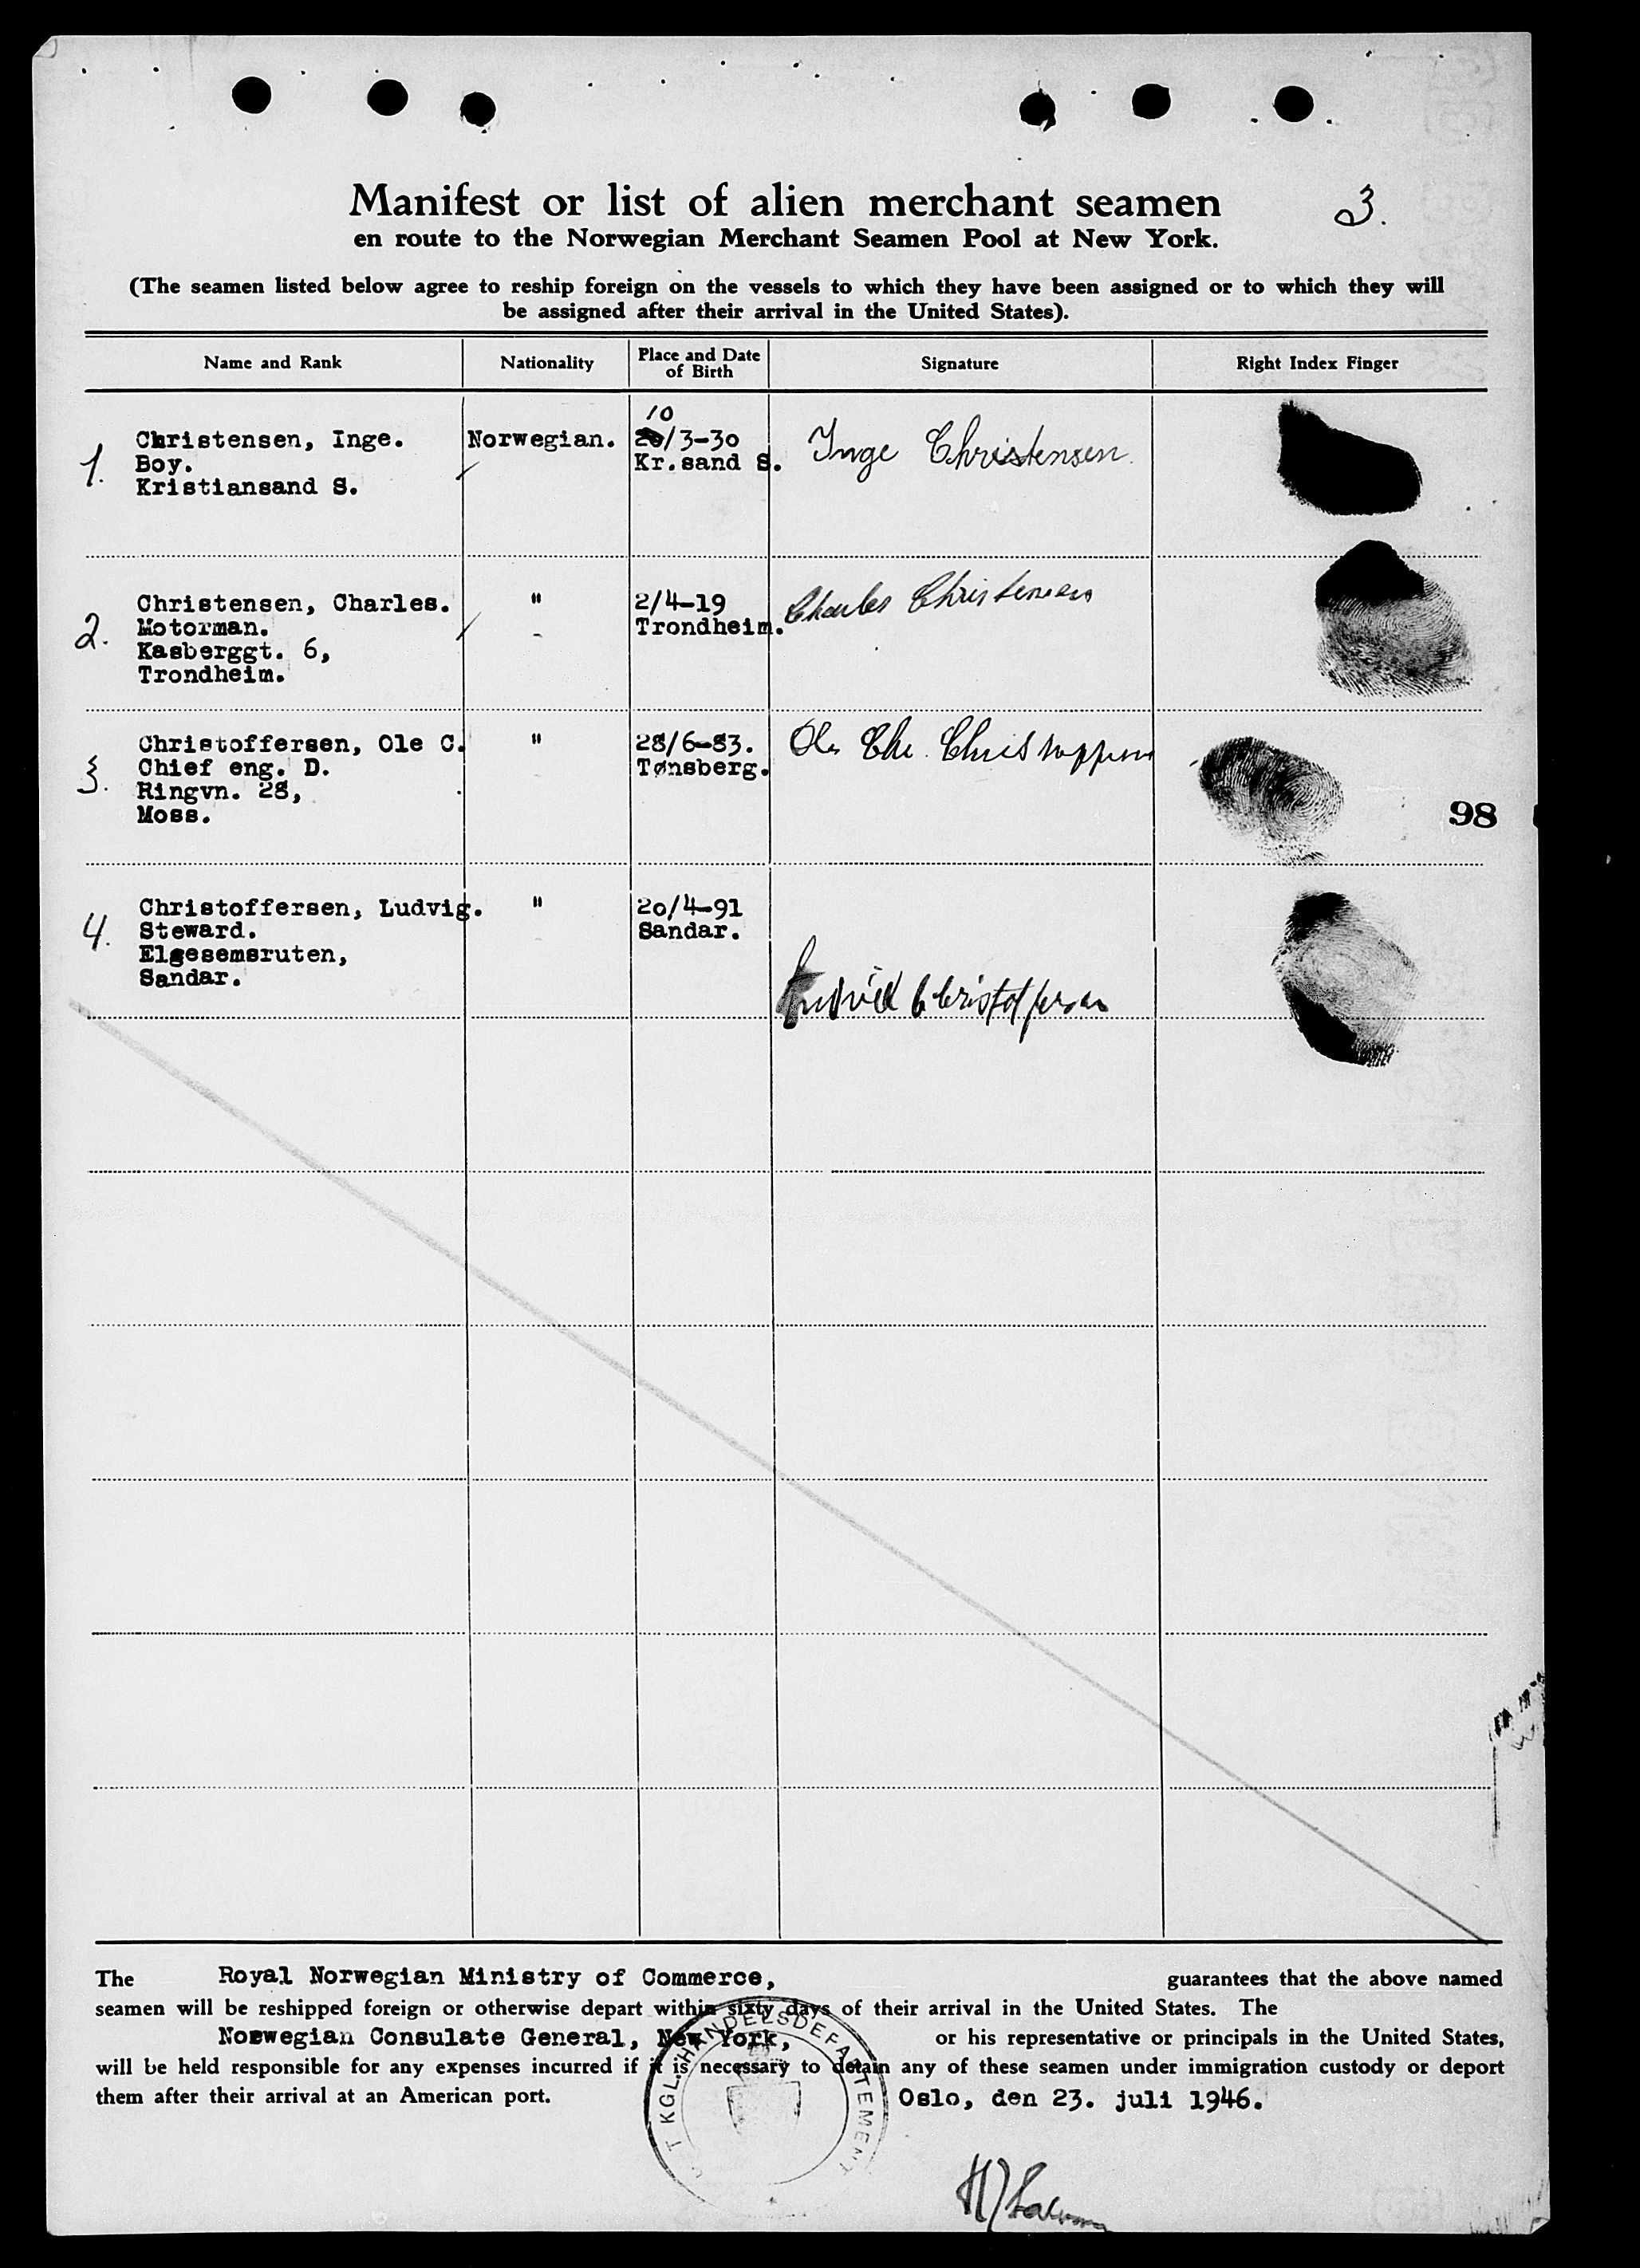 Manifest or list of alien merchant seamen
3.
en route to the Norwegian Merchant Seamen Pool at New York.
(The seamen listed below agree to reship foreign on the vessels to which they have been assigned or to which they will
be assigned after their arrival in the United States).
Name and Rank
Nationality
Place and Date
of Birth
Signature
Right Index Finger
1.
Christensen, Inge.
Boy.
Kristiansand S.
Norwegian.
10
/3-30
Kr.sand S.
Inge Christensen
2.
Christensen, Charles.
Motorman.
Kasberggt. 6,
Trondheim.
"
2/4-19
Trondheim.
Charles Christensen
3.
Christoffersen, Ole C.
Chief eng. D.
Ringvn. 28,
Moss.
"
28/6-83.
Tønsberg.
Ole Chr. Christoffersen
98
4.
Christoffersen, Ludvig.
Steward.
Elgesemsruten,
Sandar.
"
20/4-91
Sandar.
Christoffersen
The Royal Norwegian Ministry of Commerce, guarantees that the above named
seamen will be reshipped foreign or otherwise depart within sixty days of their arrival in the United States. The
Norwegian Consulate General, New York, or his representative or principals in the United States,
will be held responsible for any expenses incurred if it is necessary to detain any of these seamen under immigration custody or deport
them after their arrival at an American port.
Oslo, den 23. juli 1946.
KGL. HANDELSDEPARTEMENT